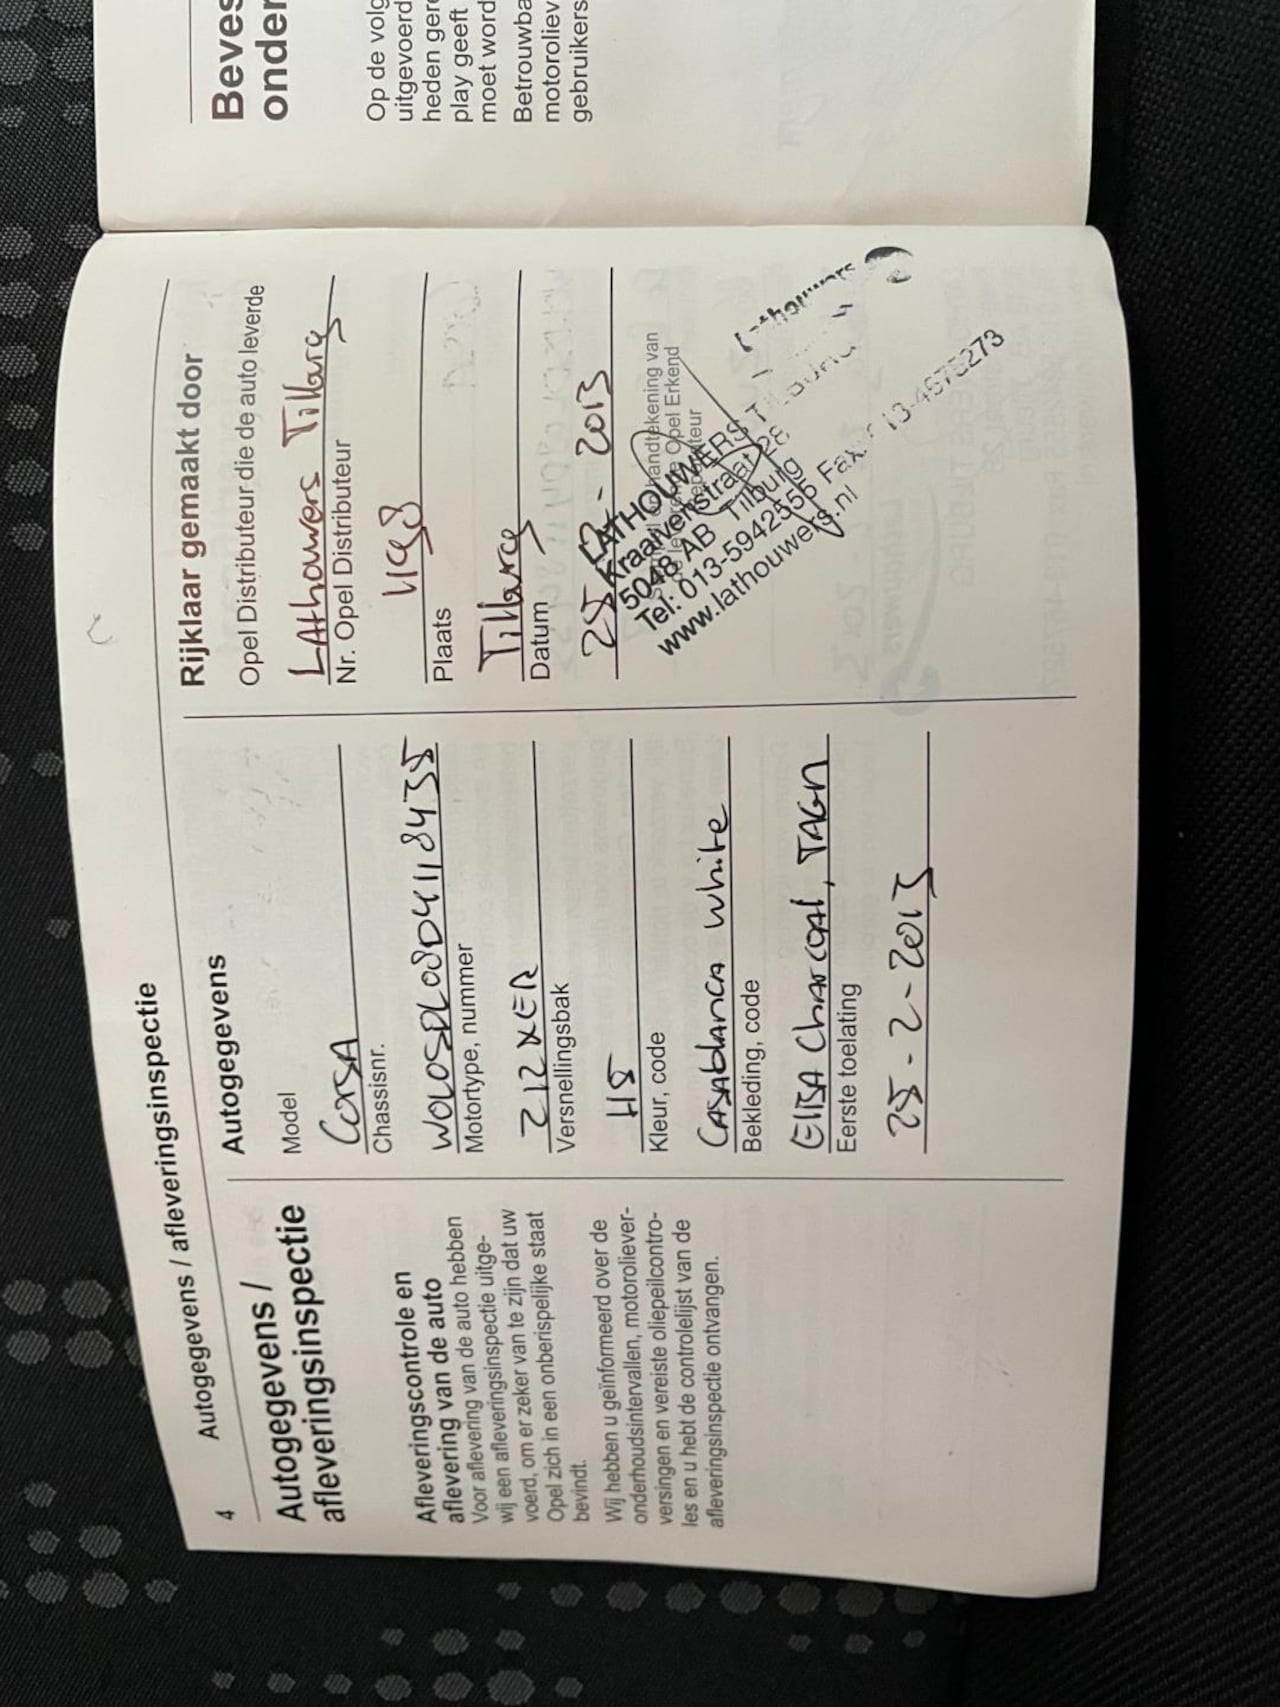 4
Autogegevens / afleveringsinspectie
Autogegevens /
afleveringsinspectie
Afleveringscontrole en
aflevering van de auto
Voor aflevering van de auto hebben
wij een afleveringsinspectie uitge-
voerd, om er zeker van te zijn dat uw
Opel zich in een onberispelijke staat
bevindt.
Wij hebben u geïnformeerd over de
onderhoudsintervallen, motoroliever-
versingen en vereiste oliepeilcontro-
les en u hebt de controlelijst van de
afleveringsinspectie ontvangen.
Autogegevens
Model
Corsa
Chassisnr.
W0L0SDL08D4118435
Motortype, nummer
Z12XER
Versnellingsbak
H5
Kleur, code
Casablanca White
Bekleding, code
Elisa Charcoal, TAGN
Eerste toelating
25-2-2013
Rijklaar gemaakt door
Opel Distributeur die de auto leverde
LAthouwers Tilburg
Nr. Opel Distributeur
Plaats
Tilburg
Datum
25-2-2013
handtekening van
Opel Erkend
LATHOUWERS
Kraaivenstraat 28
5048 AB Tilburg
Tel: 013-5942555 Fax: 13-4675273
www.lathouwers.nl
Lathouwers
Beves
onder
Op de volg
uitgevoerd
heden gere
play geeft
moet word
Betrouwba
motoroliev
gebruikers